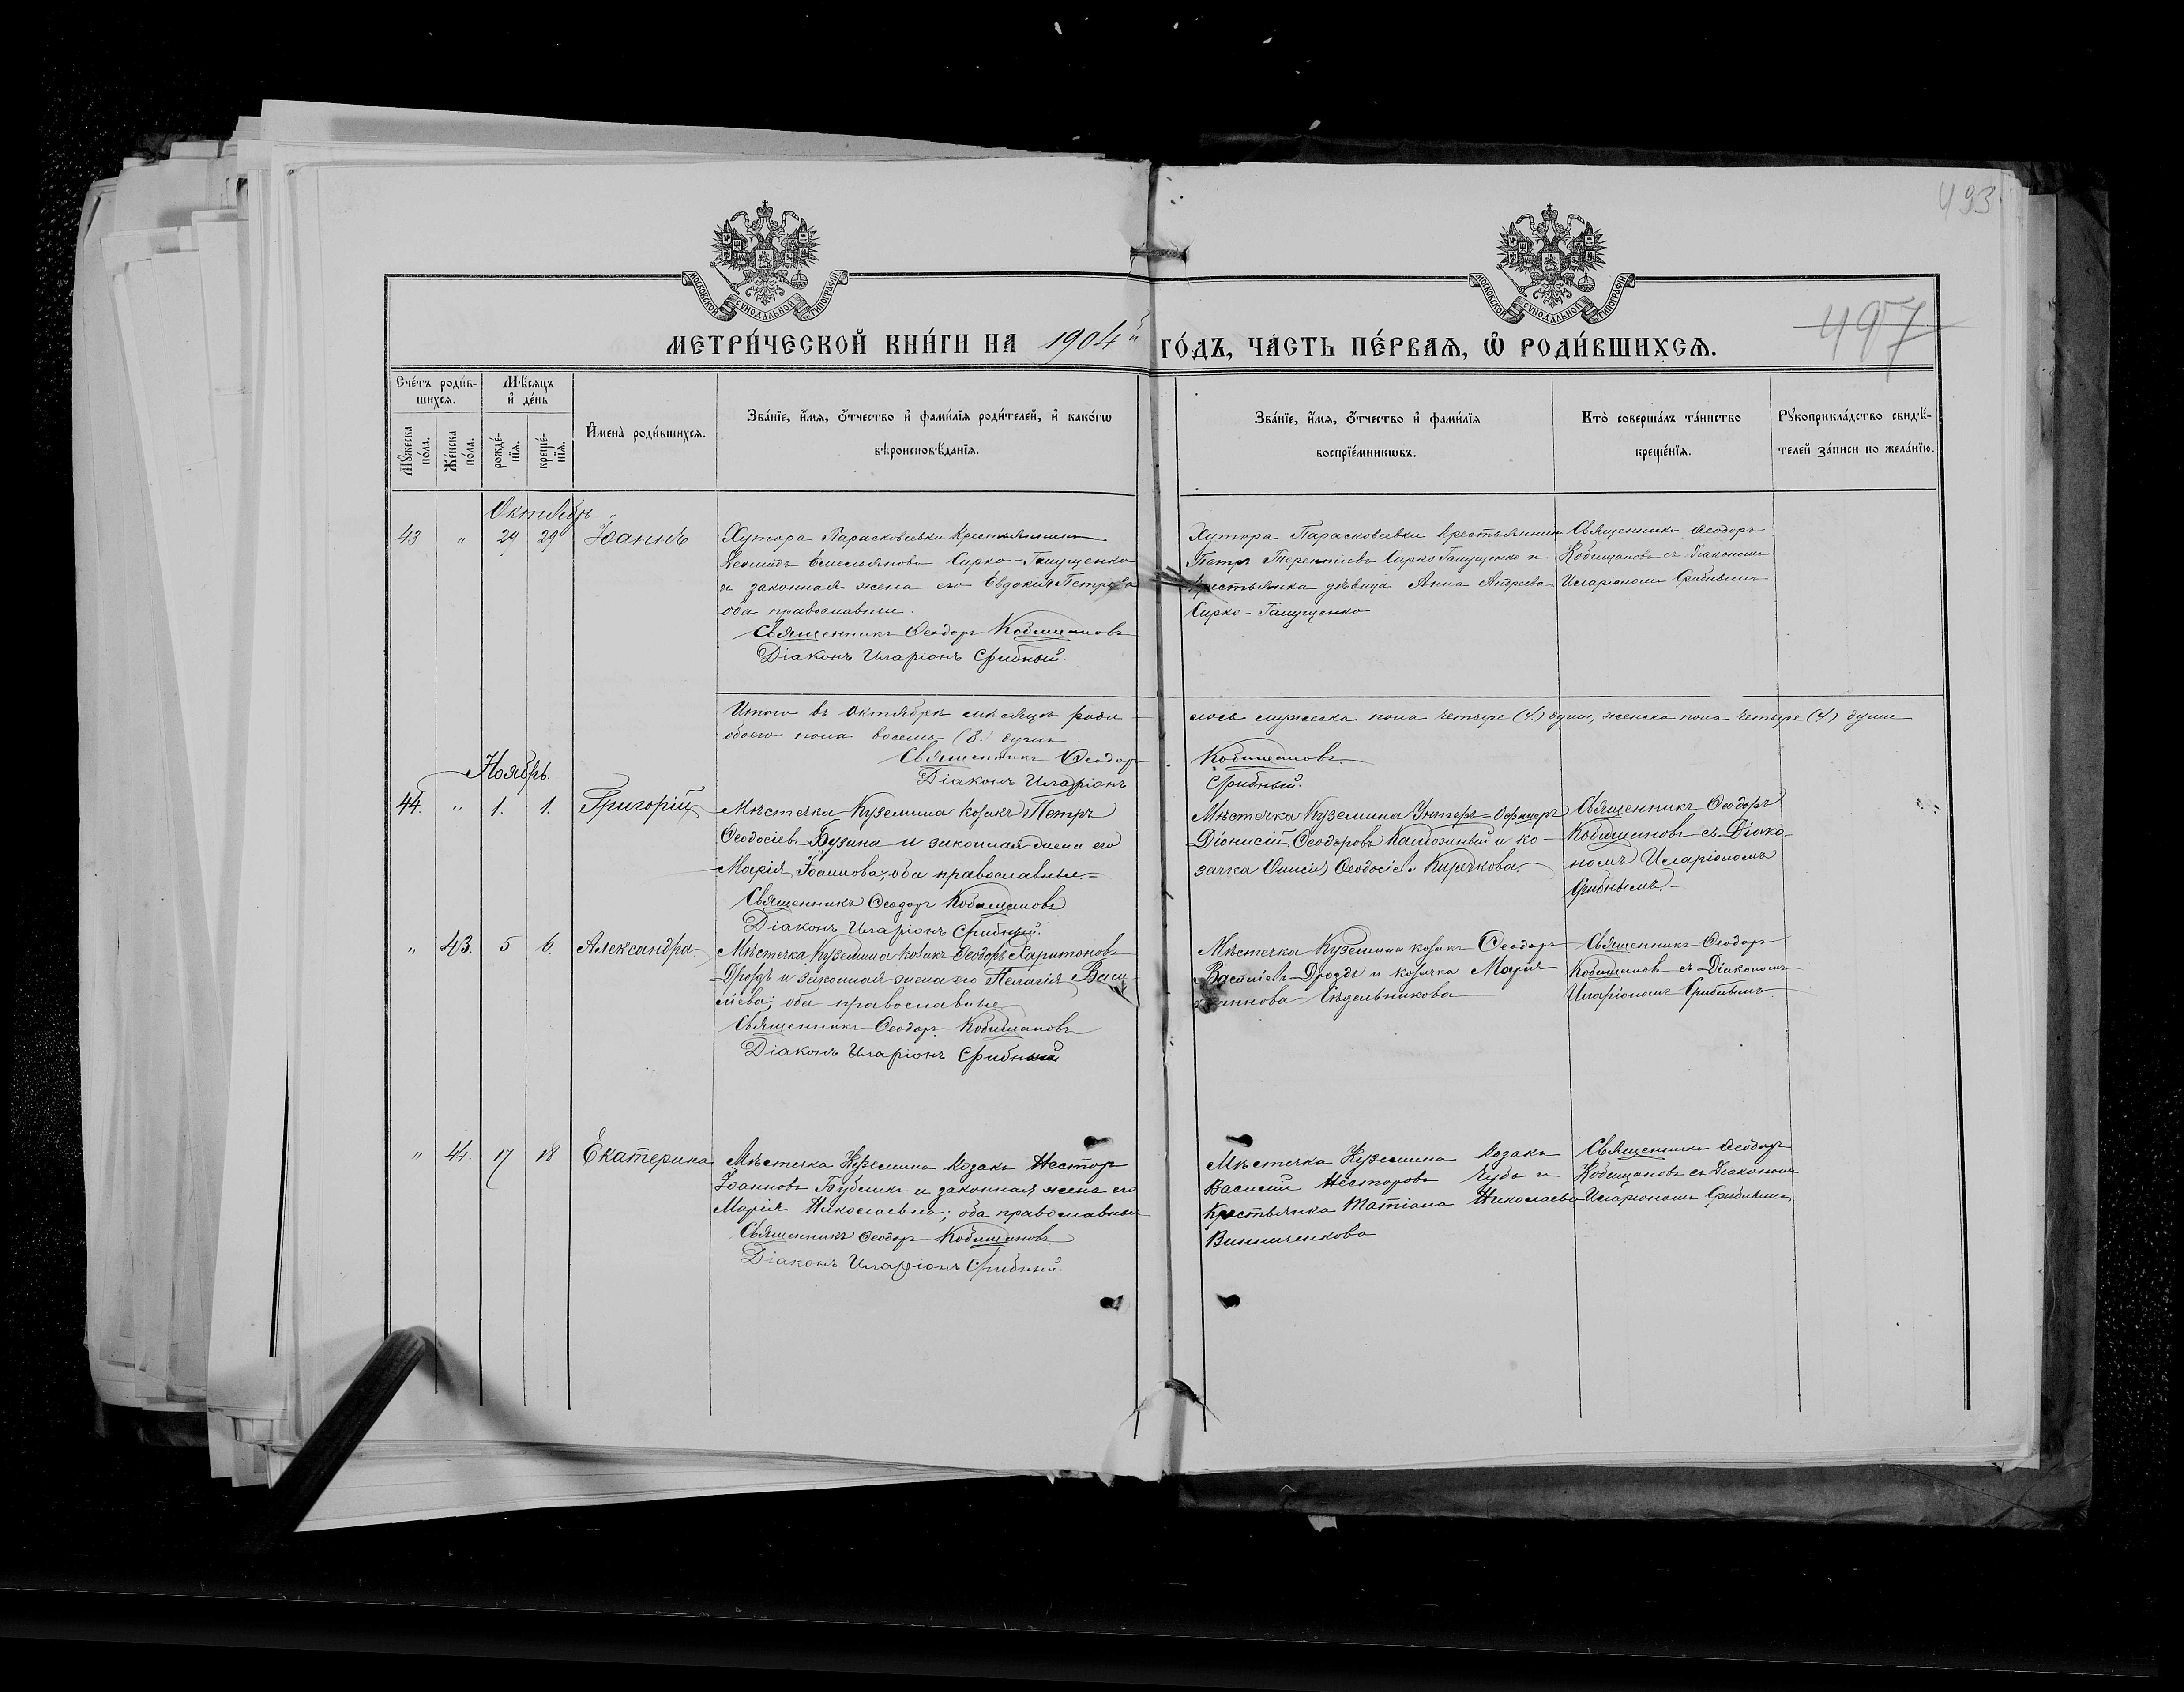 493
МОСКОВСКОЙ СѴНОДАЛЬНОЙ ТИПОГРАФІИ
МОСКОВСКОЙ СѴНОДАЛЬНОЙ ТИПОГРАФІИ
497
МЕТРИ́ЧЕСКОЙ КНИ́ГИ НА 1904й ГО́ДЪ, ЧА́СТЬ ПЕ́РВАѦ, Ѡ҆ РОДИ́ВШИХСѦ.
Сче́тъ роди́в-
шихсѧ.
Мꙋ́жеска по́ла.
Же́нска по́ла.
Мѣ́сѧцъ
и҆ де́нь
рожде́-
нїѧ.
креще́-
нїѧ.
И҆мена̀ роди́вшихсѧ.
Зва́нїе, и҆́мѧ, ѻ҆́тчество и҆ фами́лїѧ роди́телей, и҆ како́гѡ
вѣроисповѣ́данїѧ.
Зва́нїе, и҆́мѧ, ѻ҆́тчество и҆ фами́лїѧ
воспрїе́мникѡвъ.
Кто̀ соверша́лъ та́инство
креще́нїѧ.
Рꙋкоприкла́дство свидѣ́-
телей за́писи по жела́нїю.
Октябрь.
43 " 29 29 Іоаннъ
Хутора Парасковеевки крестьянинъ
Емельяновъ Сирко-Галущенко
и законная жена его Евдокия Петрова
оба православные.
Священникъ Ѳеодоръ Кобищановъ
Діаконъ Иларіонъ Срибный.
Хутора Парасковеевки крестьянинъ
Петръ Терентіевъ Сирко Галущенко и
крестьянка дѣвица Анна Андреева
Сирко-Галущенко
Священникъ Ѳеодоръ
Кобищановъ съ діакономъ
Иларіономъ Срибнымъ
Итого въ Октябрѣ мѣсяцѣ роди-лось мужеска пола четыре (4.) души, женска пола четыре (4.) души
обоего пола восемь (8.) душъ
Священникъ Ѳеодоръ Кобищановъ
Діаконъ Иларіонъ Срибный.
Ноябрь.
44. " 1. 1. Григорій
Мѣстечка Куземина козакъ Петръ
Ѳеодосіевъ Бузина и законная жена его
Марія Іоаннова, оба православные.
Священникъ Ѳеодоръ Кобищановъ
Діаконъ Иларіонъ Срибный.
Мѣстечка Куземина Унтеръ-Офицеръ
Діонисій Ѳеодоровъ и ко-
зачка Ѳеодосіева Киричкова.
Священникъ Ѳеодоръ
Кобищановъ съ Діако-
номъ Иларіономъ
Срибнымъ.
" 43. 5 6. Александра
Мѣстечка Куземина козакъ Ѳеодоръ Харитоновъ
Дроздъ и законная жена его Пелагія Васи-
ліева; оба православные
Священникъ Ѳеодоръ Кобищановъ
Діаконъ Иларіонъ Срибный
Мѣстечка Куземина козакъ Ѳеодоръ
Василіевъ Дроздъ и козачка Марія
Іоаннова
Священникъ Ѳеодоръ
Кобищановъ съ Діакономъ
Иларіономъ Срибнымъ
" 44. 17 18 Екатерина
Мѣстечка Куземина козакъ Несторъ
Іоанновъ Бубликъ и законная жена его
Марія Николаевна; оба православные
Священникъ Ѳеодоръ Кобищановъ
Діаконъ Иларіонъ Срибный.
Мѣстечка Куземина козакъ
Василій Несторовъ Чубъ и
крестьянка Татіана Николаева
Винниченкова
Священникъ Ѳеодоръ
Кобищановъ съ Діакономъ
Иларіономъ Срибнымъ